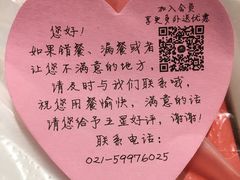 加入会员
享免外送优惠
您好！
如果错餐、漏餐或者
让您不满意的地方，
请及时与我们联系哦，
祝您用餐愉快，满意的话
请您给予五星好评，谢谢！
联系电话：
021-59976025